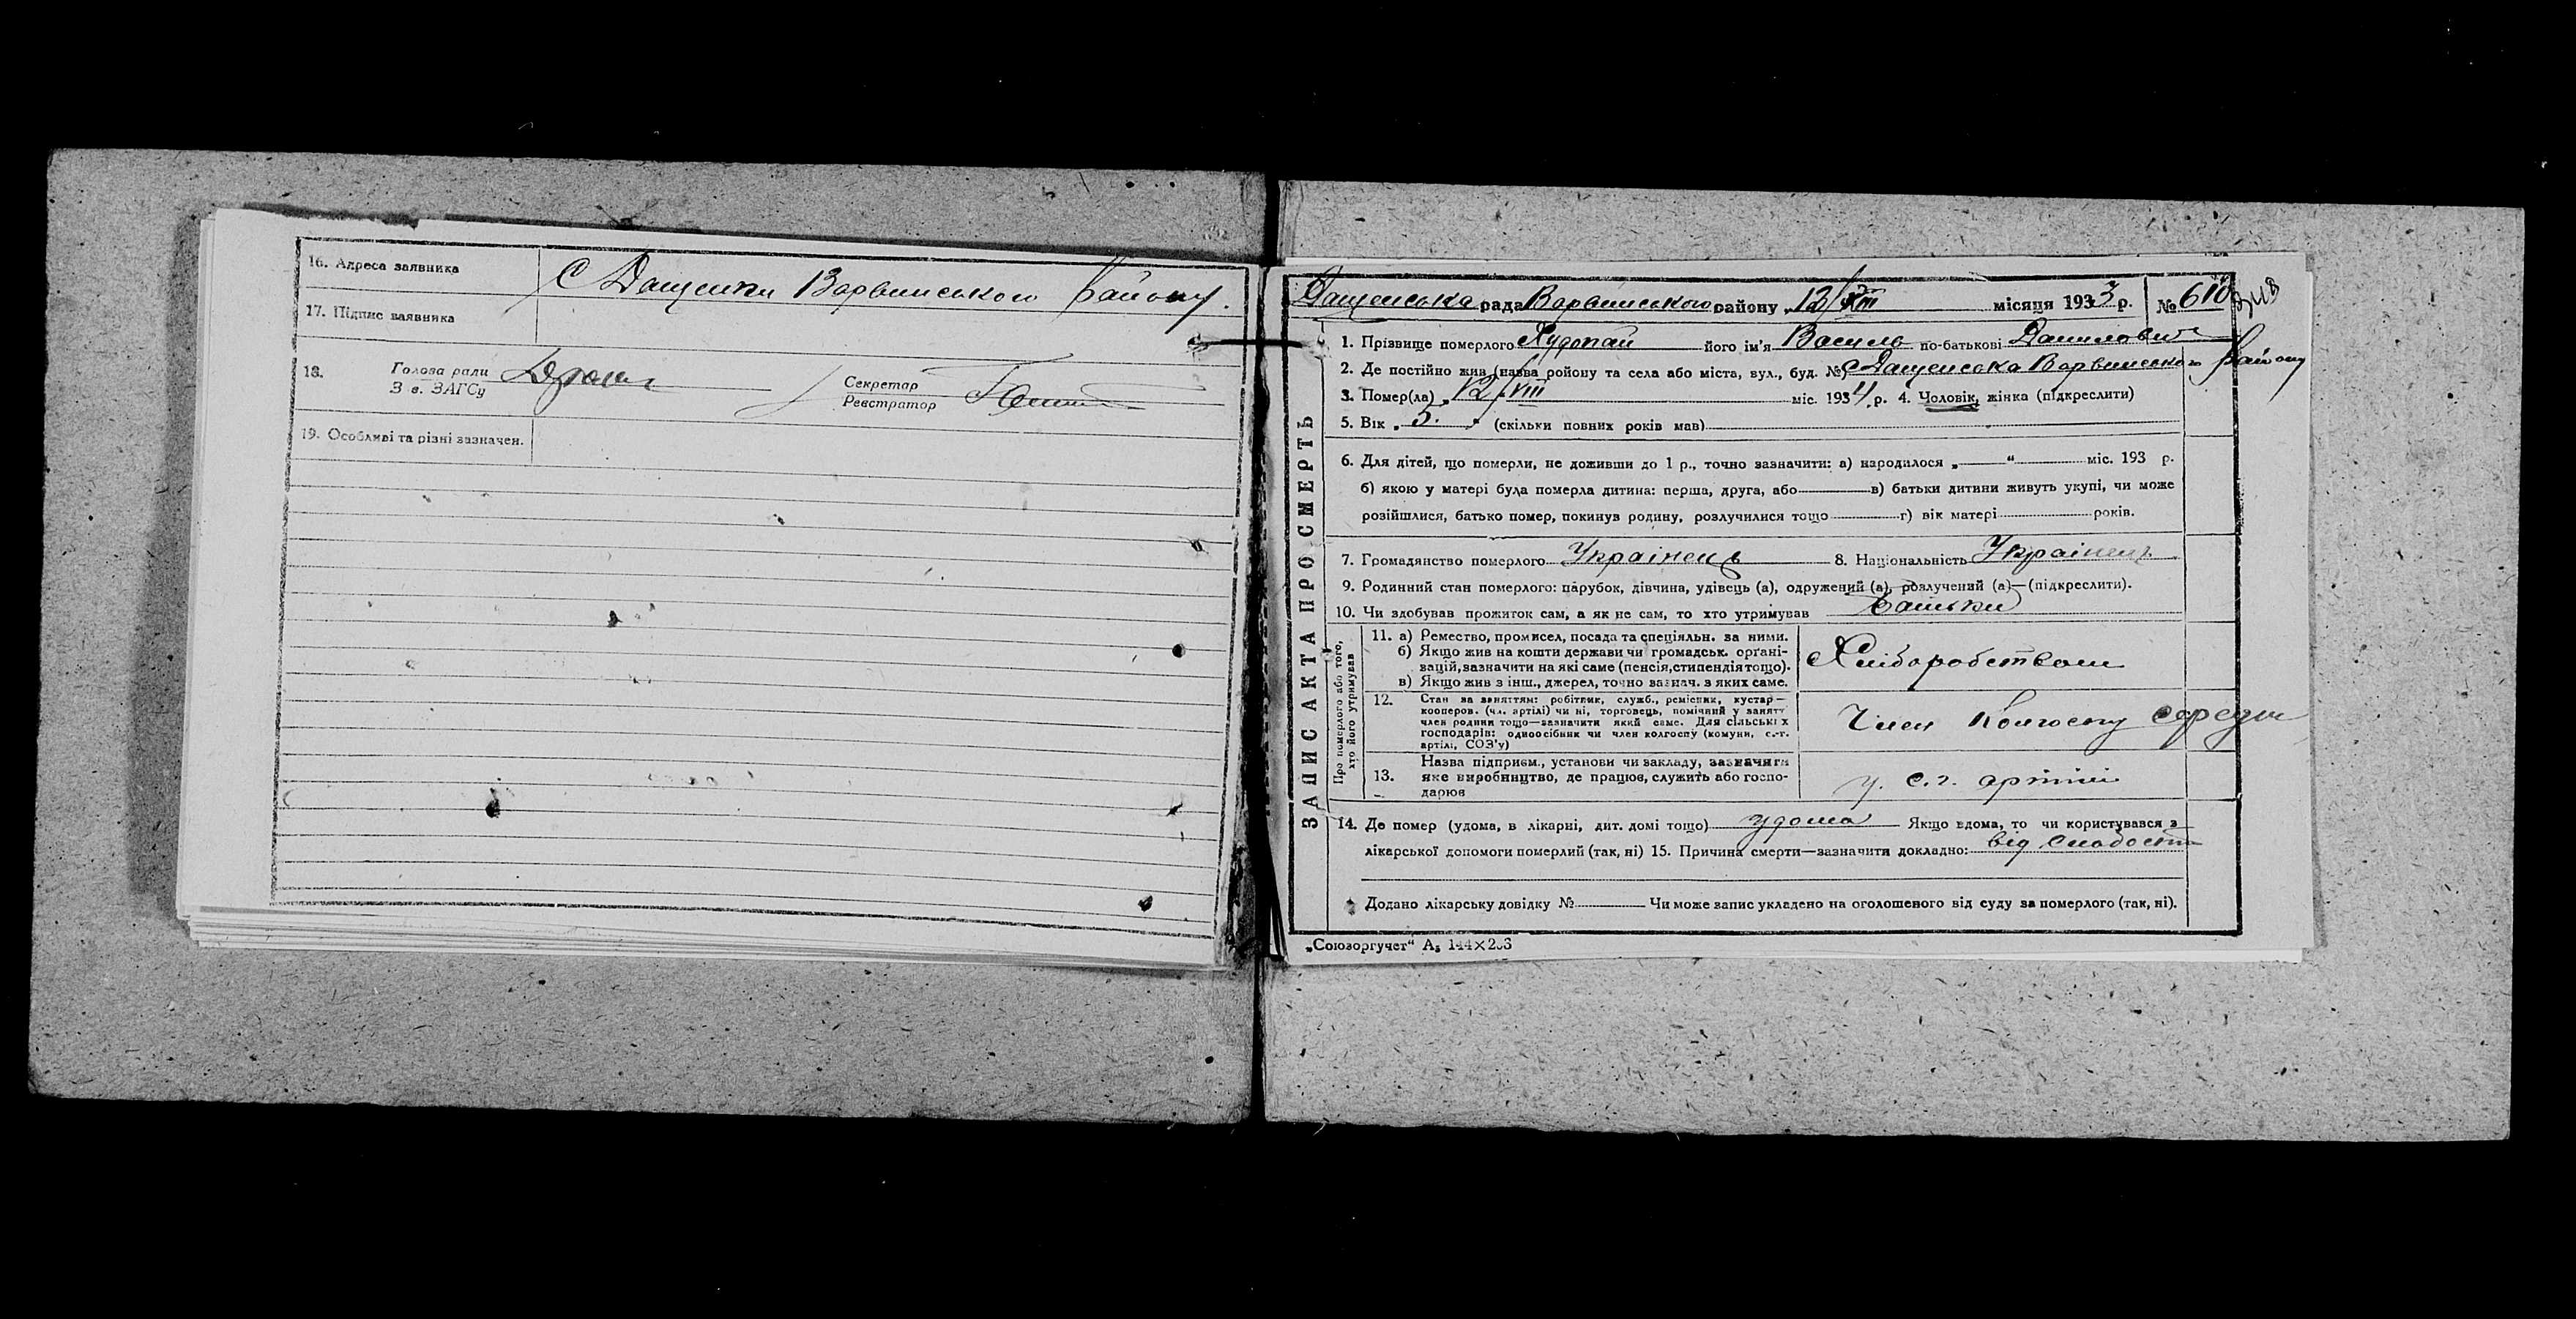 16. Адреса заявника С Дащенки Варвинського Району.
17. Підпис заявника
18. Голова ради
З в. ЗАГСу
Секретар
Реєстратор
19. Особливі та різні зазначен.
Дащенська рада Варвинського району „12/VIII місяця 1933 р. № 610
1. Прізвище померлого Худопай його ім'я Василь по-батькові Данилович
2. Де постійно жив (назва ройону та села або міста, вул., буд. №) с Дащенська Варвинського Району
3. Помер(ла) „12/VIII міс. 1934 р. 4. Чоловік, жінка (підкреслити)
5. Вік „5." (скільки повних років мав)
6. Для дітей, що померли, не доживши до 1 р., точно зазначити: а) народилося „ " міс. 193 р.
б) якою у матері була померла дитина: перша, друга, або в) батьки дитини живуть укупі, чи може
розійшлися, батько помер, покинув родину, розлучилися тощо г) вік матері років.
7. Громадянство померлого Украінець 8. Національність Украінець
9. Родинний стан померлого: парубок, дівчина, удівець (а), одружений (а), розлучений (а)—(підкреслити).
10. Чи здобував прожиток сам, а як не сам, то хто утримував Батьки
ЗАПИС АКТА ПРО СМЕРТЬ
Про померлого або того,
хто його утримував
11. а) Ремество, промисел, посада та спеціяльн. за ними.
б) Якщо жив на кошти держави чи громадськ. органі-
вацій, зазначити на які саме (пенсія, стипендія тощо).
в) Якщо жив з інш., джерел, точно вазнач. з яких саме.
Хліборобством
12. Стан за заняттям: робітник, служб., ремісник, кустар—
кооперов. (чл. артілі) чи ні, торговець, помічний у занятт
член родини тощо—зазначити який саме. Для сільських
господарів: одноосібник чи член колгоспу (комуни, с.-г.
артілі, СОЗ'у)
Член Колгоспу середн
13. Назва підприєм., установи чи закладу, зазначити
яке виробництво, де працює, служить або госпо-
дарює
у. с.г. артілі
14. Де помер (удома, в лікарні, дит. домі тощо) удома Якщо вдома, то чи користувався з
лікарської допомоги померлий (так, ні) 15. Причина смерти—зазначити докладно: від слабости
Додано лікарську довідку № Чи може запис укладено на оголошеного від суду за померлого (так, ні).
„Союзоргучет" А₅ 144×203